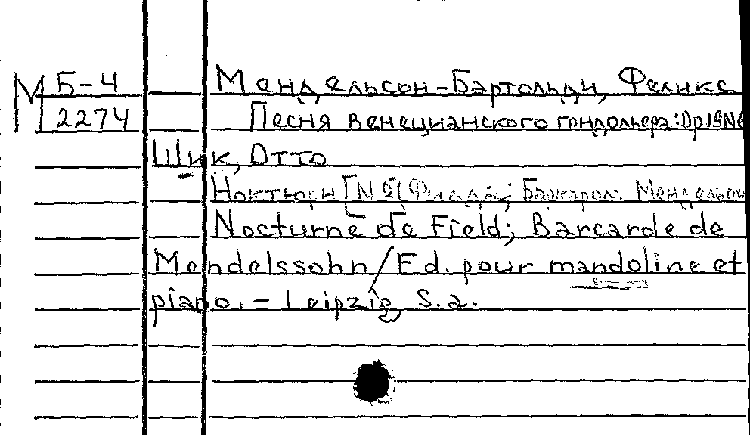 М Б-4 Мендельсон-Бартольди, Феликс
2274 Песня венецианского гондольера: Op19N6
Шик, Отто
Ноктюрн [N 5(Фильда;
Nocturne de Field; Barcarde de
Mendelssohn/Ed. pour mandoline et
piano. - Leipzig, S.a.